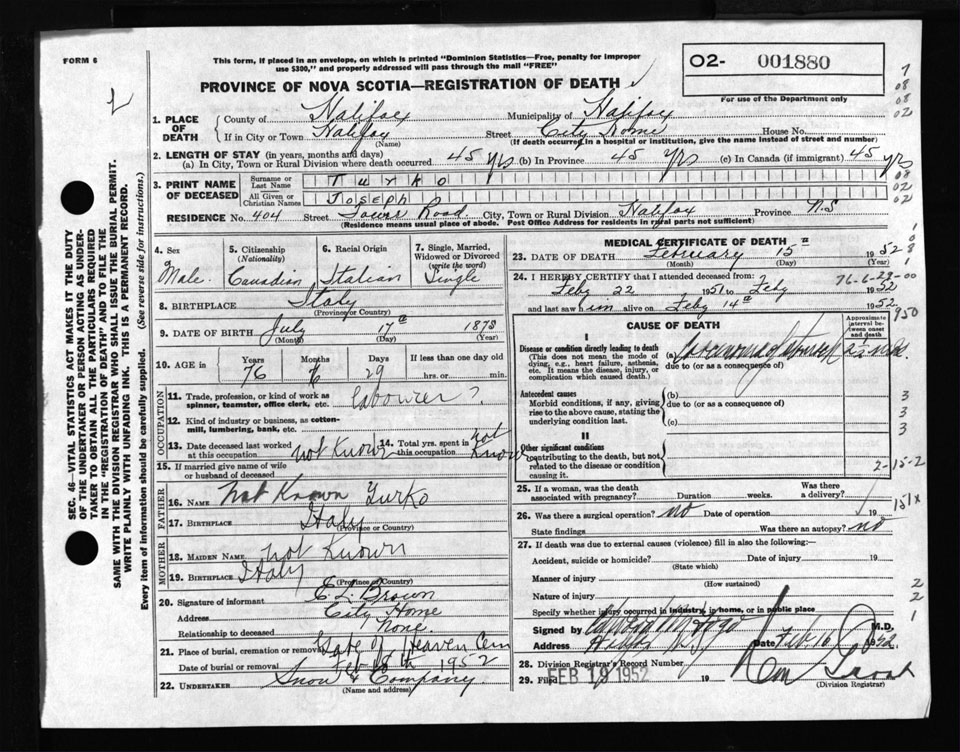 FORM 6
This form, if placed in an envelope, on which is printed "Dominion Statistics—Free, penalty for improper
use $300," and properly addressed will pass through the mail "FREE"
PROVINCE OF NOVA SCOTIA—REGISTRATION OF DEATH
O2- 001880
For use of the Department only
1. PLACE OF DEATH
County of Halifax Municipality of Halifax
If in City or Town Halifax Street City Home House No.
(Name) (If death occurred in a hospital or institution, give the name instead of street and number)
2. LENGTH OF STAY (in years, months and days)
(a) In City, Town or Rural Division where death occurred 45 yrs (b) In Province 45 yrs (c) In Canada (if immigrant) 45 yrs
3. PRINT NAME OF DECEASED
Surname or Last Name Turko
All Given or Christian Names Joseph
RESIDENCE No. 404 Street Towers Road City, Town or Rural Division Halifax Province N.S
(Residence means usual place of abode. Post Office Address for residents in rural parts not sufficient)
4. Sex Male
5. Citizenship (Nationality) Canadian
6. Racial Origin Italian
7. Single, Married, Widowed or Divorced (write the word) Single
8. BIRTHPLACE Italy
(Province or Country)
9. DATE OF BIRTH July 17th 1875
(Month) (Day) (Year)
10. AGE in Years Months Days If less than one day old
76 6 29 hrs. or min.
OCCUPATION
11. Trade, profession or kind of work as spinner, teamster, office clerk, etc. labourer ?
12. Kind of industry or business, as cotton-mill, lumbering, bank, etc.
13. Date deceased last worked at this occupation not Known
14. Total yrs. spent in this occupation not Known
15. If married give name of wife or husband of deceased
FATHER
16. NAME not Known Turko
17. BIRTHPLACE Italy
(Province or Country)
MOTHER
18. MAIDEN NAME not Known
19. BIRTHPLACE Italy
(Province or Country)
20. Signature of informant C L Brown
Address City Home
Relationship to deceased None.
21. Place of burial, cremation or removal Gate of Heaven Cem
Date of burial or removal Feb 18th 1952
22. UNDERTAKER Snow & Company
(Name and address)
MEDICAL CERTIFICATE OF DEATH
23. DATE OF DEATH February 15th 1952
(Month) (Day) (Year)
24. I HEREBY CERTIFY that I attended deceased from:
Feby 22 1951 to Feby 1952
76-6-29-00
and last saw him alive on Feby 14th 1952
950
CAUSE OF DEATH
Approximate interval between onset and death
I
Disease or condition directly leading to death
(This does not mean the mode of dying, e.g., heart failure, asthenia, etc. It means the disease, injury, or complication which caused death.)
(a) Carcinoma of
due to (or as a consequence of)
Antecedent causes
Morbid conditions, if any, giving rise to the above cause, stating the underlying condition last.
(b)
due to (or as a consequence of)
(c)
II
Other significant conditions
contributing to the death, but not related to the disease or condition causing it.
2-15-2
25. If a woman, was the death associated with pregnancy? Duration weeks. Was there a delivery?
151x
26. Was there a surgical operation? no Date of operation 19
State findings Was there an autopsy? no
27. If death was due to external causes (violence) fill in also the following:
Accident, suicide or homicide? Date of injury 19
(State which)
Manner of injury
(How sustained)
Nature of injury
Specify whether injury occurred in industry, in home, or in public place
Signed by M.D.
Address Halifax N.S. Date Feb. 16 1952.
28. Division Registrar's Record Number
29. Filed FEB 19 1952 19
(Division Registrar)
SEC. 46—VITAL STATISTICS ACT MAKES IT THE DUTY
OF THE UNDERTAKER OR PERSON ACTING AS UNDER-
TAKER TO OBTAIN ALL THE PARTICULARS REQUIRED
IN THE "REGISTRATION OF DEATH" AND TO FILE THE
SAME WITH THE DIVISION REGISTRAR WHO SHALL ISSUE THE BURIAL PERMIT.
WRITE PLAINLY WITH UNFADING INK. THIS IS A PERMANENT RECORD.
Every item of information should be carefully supplied. (See reverse side for instructions.)